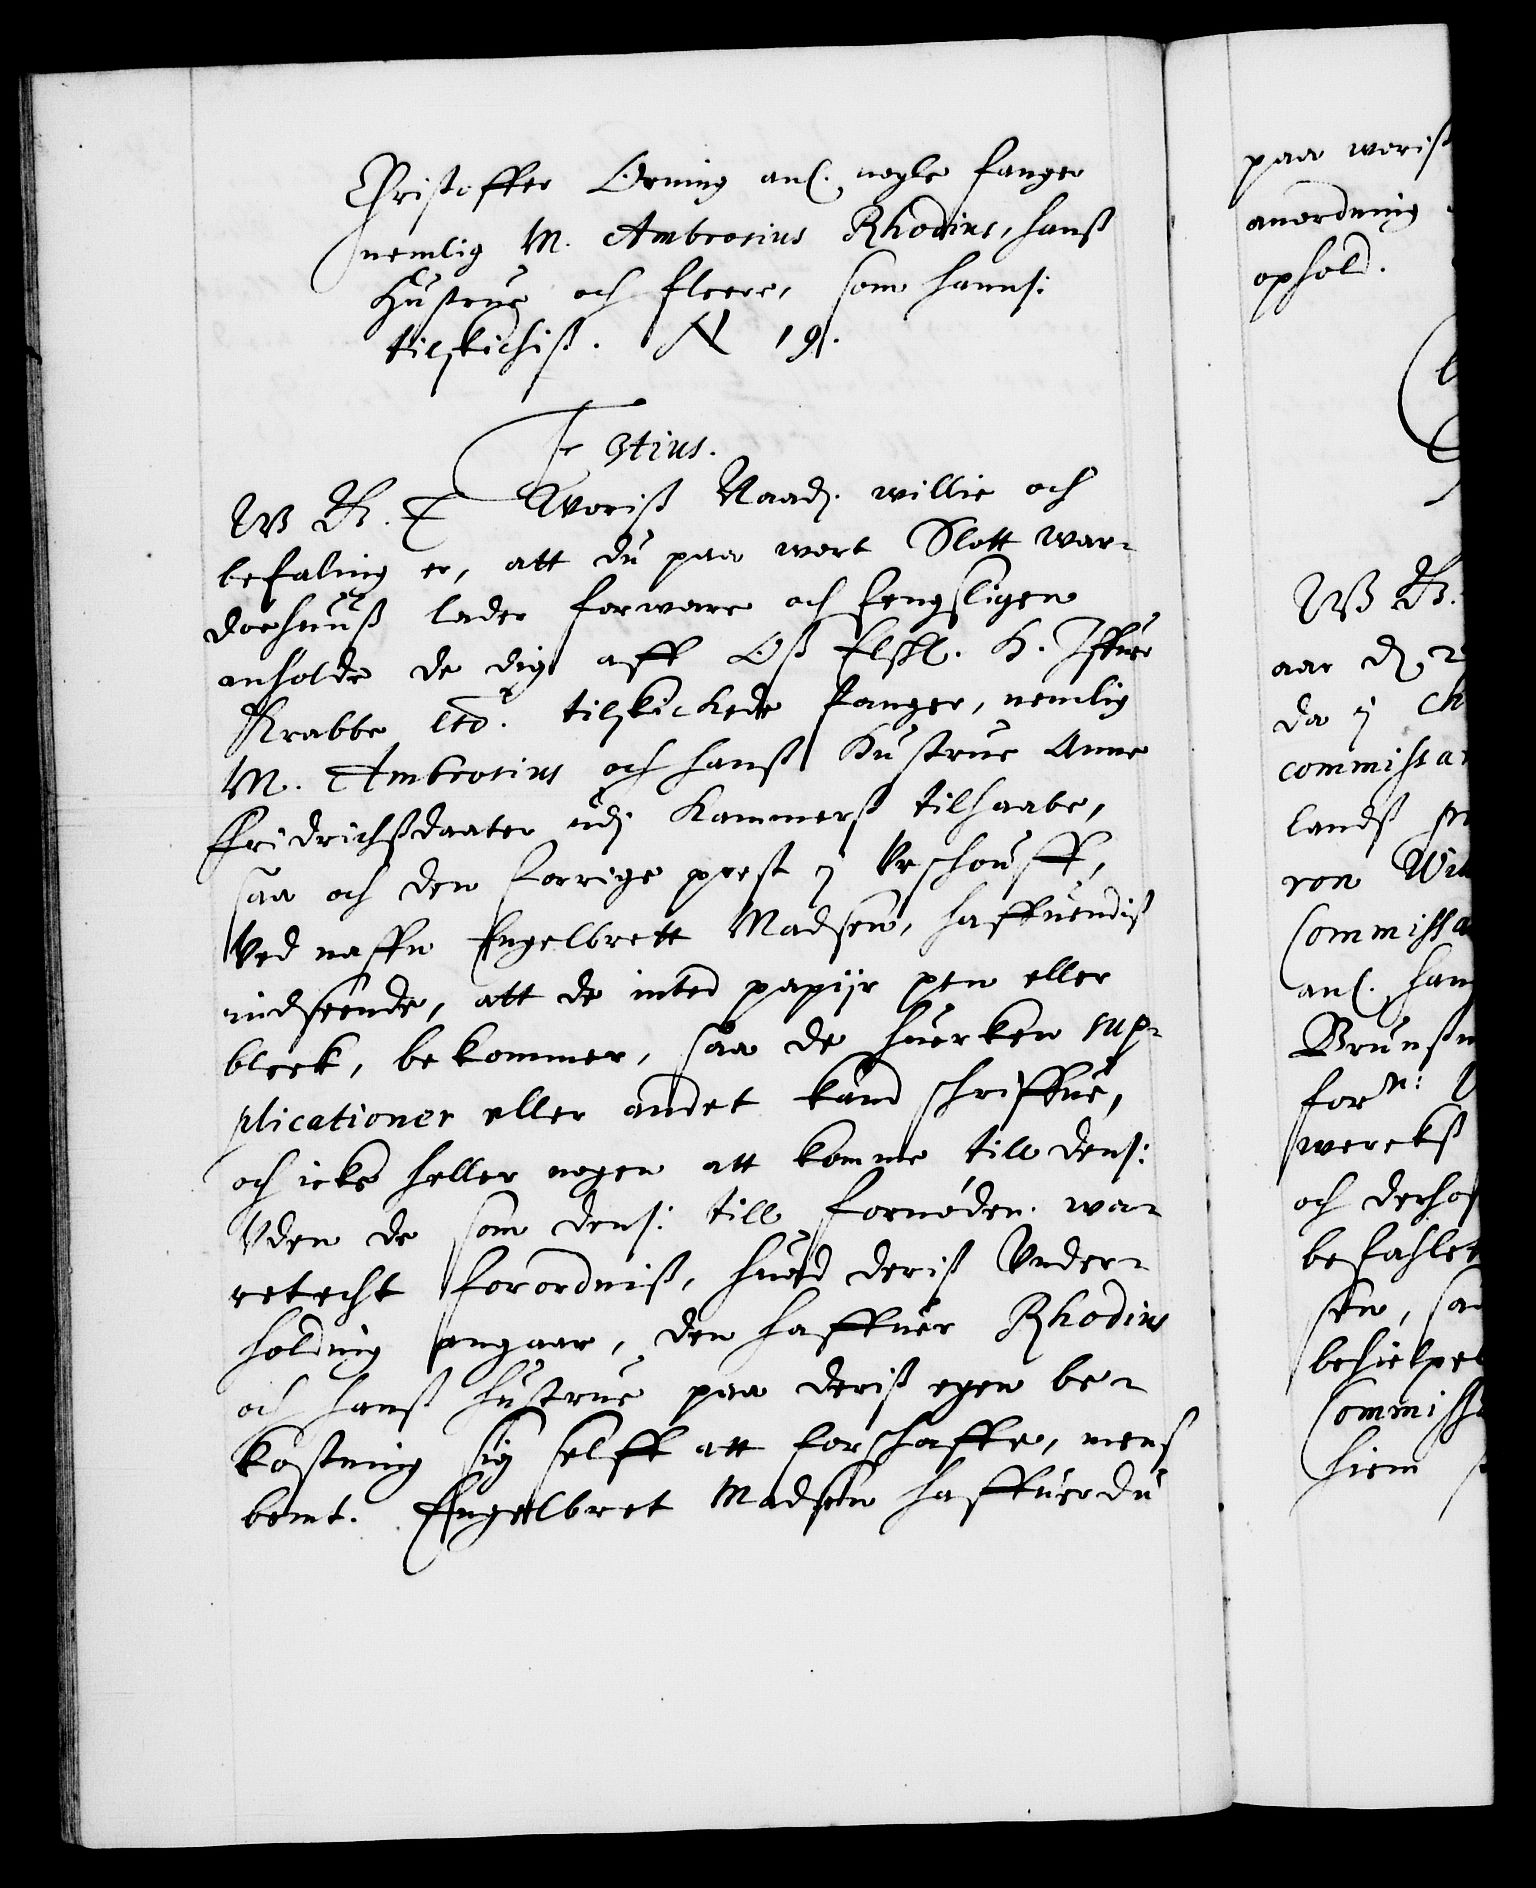 Christoffer Orning anl. nogle fanger
nemlig M. Ambrosius Rhodius, hanß
Hustrue och fleere, som hannß:
tilskichiß. N 19.
F 3tius.
W B. T Woriß Naadj. willie och
befaling er, att du paa wort Slott War-
døehuuß lader forware och fengsligen
anholde de dig aff Oß Elskl. H. Iffuer
Krabbe etc. tilskickede fanger, nemlig
M. Ambrosius och hanß Hustrue Anne
Fridrichßdaater udj Kammerß tilhaabe,
saa och den forrige prest j Vrschouff,
Ved naffn Engelbrett Madsen, haffuendiß
indseende, att de inted papijr pen eller
bleck, bekommer, saa de huerken sup-
plicationer eller andet kand schriffue,
och icke heller nogen att komme till denß:
Vden de som denß: till fornøden wa-
retecht forordniß, huad deriß Vnder-
holding angaar, den haffuer Rhodius
och hanß hustrue paa deriß egen be-
kostning sig selff att forschaffe, menß
bemt. Engelbret Madsen haffuer du
paa woriß
anordning
ophold.
W B.
aar
da j Ch
commissar
landß
von Wit
Commissa
anl. han
Brunß
forn:
werckß
och derhoß
befahlet
sen, saa
behielpel
Commissa
hiem